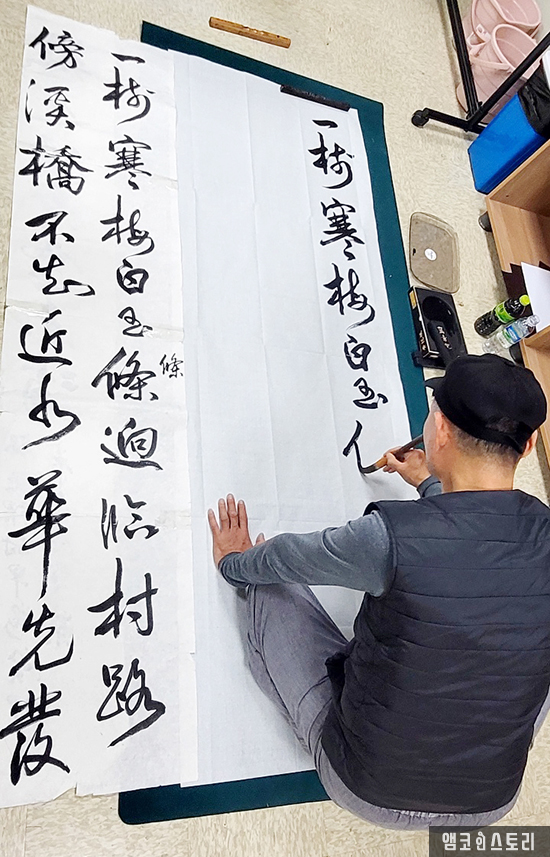 一樹寒梅白玉
一樹寒梅白玉條逈臨村路
條
傍溪橋不知近水華先發
앰코인스토리